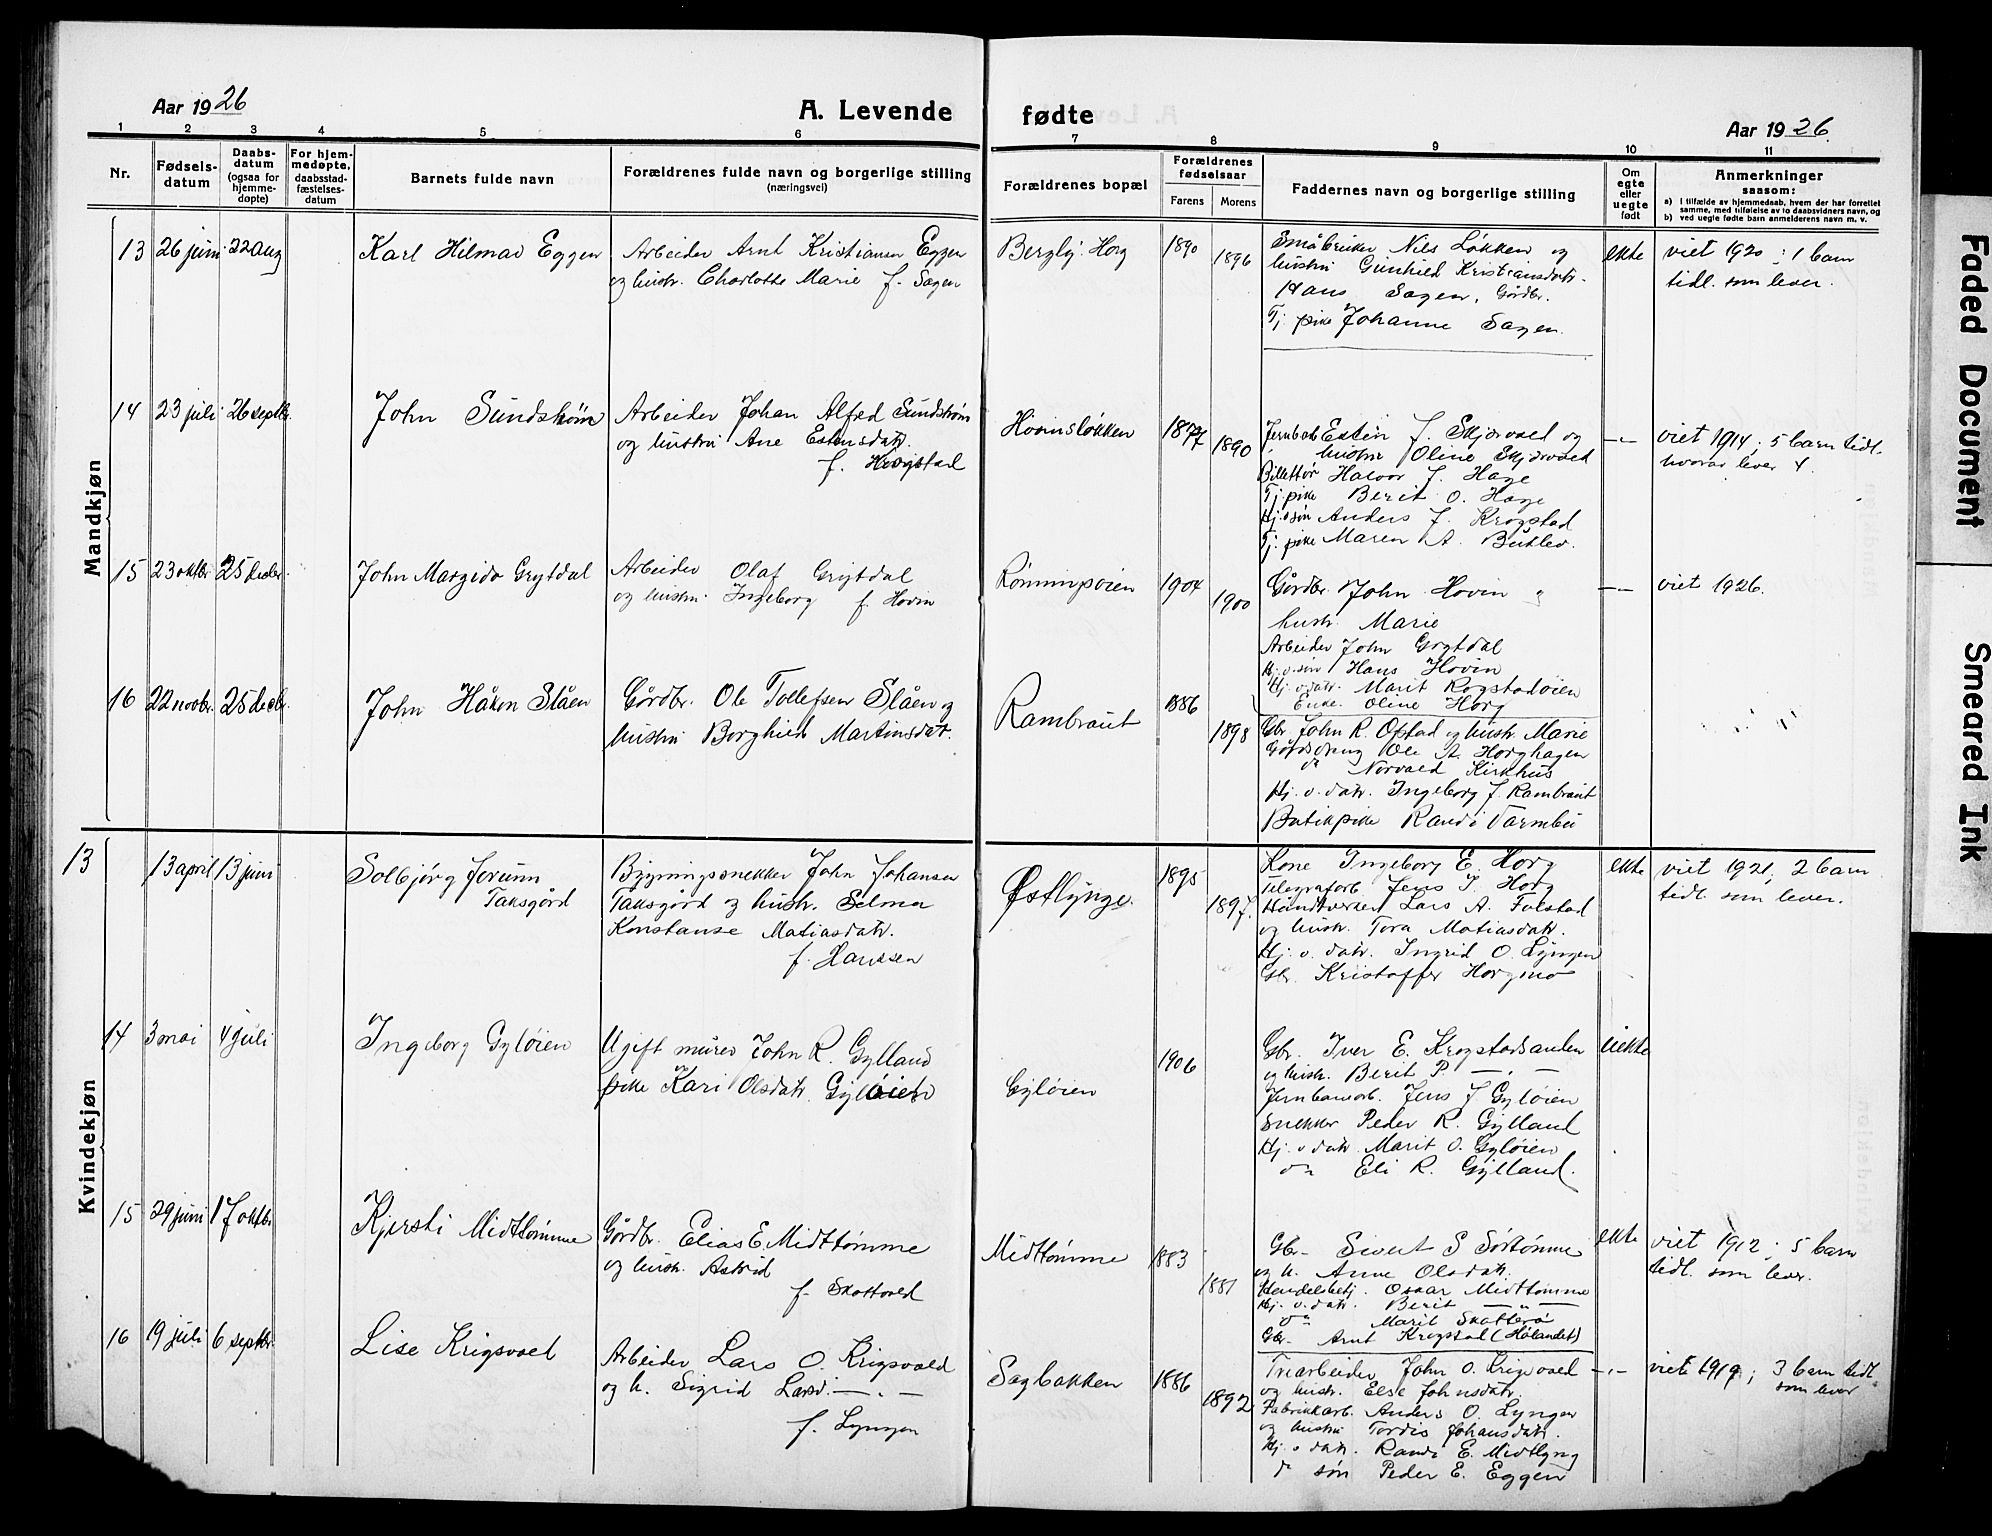 Aar 1926
A. Levende fødte
Aar 1926.
1 2 3 4 5 6 7 8 9 10 11
Nr.
Fødselsdatum
Daabsdatum (ogsaa for hjemmedøpte)
For hjemmedøpte, daabsstadfæstelsesdatum
Barnets fulde navn
Forældrenes fulde navn og borgerlige stilling (næringsvei)
Forældrenes bopæl
Forældrenes fødselsaar
Farens Morens
Faddernes navn og borgerlige stilling
Om egte eller uegte født
Anmerkninger saasom:
a) I tilfælde av hjemmedaab, hvem der har forrettet samme, med tilføielse av to daabsvidners navn, og
b) ved uegte fødte barn anmelderens navn m. v.
Mandkjøn
13 26 juni 22 aug Karl Hilmar Eggen
Arbeider Arnt Kristiansen Eggen
og hustr. Charlotte Marie f. Sagen
Bergly Horg 1890 1896
Småbruker Nils Løkken og
hustru Gunhild Kristiansdatr.
Hans Sagen, Gårdbr.
Tj. pike Johanne Sagen.
ekte
viet 1920; 1 barn
tidl. som lever.
14 23 juli 26 septbr. John Sundstrøm
Arbeider Johan Alfred Sundstrøm
og hustru Ane Estensdatr.
f. Krogstad
Hovinsløkken 1877 1890
Jernbarb. Estin J. Skjervold og
hustru Oline Skjervold
Billettør Halvor J. Hage
Tj. pike Berit O. Hage
Hj.v.søn Anders J. Krogstad
Tj. pike Maren A.
-"-
viet 1914; 5 barn tidl.
hvorav lever 4.
15 23 oktbr 25 decbr. John Margido Grytdal
Arbeider Olaf Grytdal
og hustru. Ingeborg f. Hovin
1904 1900
Gårdbr. John Hovin og
hustr. Marie
Arbeider John Grytdal
Hj. v. søn Hans Hovin
Hj. v. datr. Marit Rogstadøien
Enke. Oline Horg
-"-
viet 1926.
16 22 novbr. 25 decbr. John Håkon Slåen
Gårdbr. Ole Tollefsen Slåen og
hustru Borghild Martinsdatr.
Rambraut 1886 1898
Gbr. John R. Ofstad og hustr. Marie
Gårdsdreng Ole A. Horghagen
do Norvald Kirkhus
Hj. v. datr. Ingeborg J. Rambraut
Butikpike Randi Varmbu
Kvindekjøn
13 13 april 13 juni Solbjørg Jorunn
Taksgård
Bygningssnekker John Johansen
Taksgård og hustr. Selma
Konstanse Matiasdatr.
f. Hanssen
Østlynge. 1895 1897.
Kone Ingeborg E. Horg
telegrafarb. Jens J. Horg
Håndverker Lars A. Folstad
og hustr. Tora Matiasdatr.
Hj. v. datr. Ingrid O. Lyngen
Gbr. Kristoffer Horgmo
ekte
viet 1921, 2 barn
tidl. som lever.
14 3 mai 4 juli Ingeborg Gyløien
Ugift murer John R. Gylland
pike Kari Olsdatr. Gyløien
Gyløien 1906
Gbr. Iver E. Krogstadsanden
og hustr. Berit P —"—
Jernbanearb. Jens J Gyløien
Snekker Peder R. Gylland
Hj. v datr. Marit O. Gyløien
do Eli R. Gylland.
uekte
15 29 juni 17 oktbr. Kjersti Midttømme
Gårdbr. Elias E. Midttømme
og hustr. Astrid
f. Skottvold
Midttømme 1883 1881
Gbr. Sivert S Sørtømme
og h. Anne Olsdatr.
Handelsbetj. Oskar Midttømme
Hj. v. datr. Berit —"—
do Marit Skotterø
Gbr. Arnt Krogstad (Hølandet)
ekte
viet 1912; 5 barn
tidl. som lever.
16 19 juli 6 septbr. Lise Krigsvoll
Arbeider Lars O. Krigsvold
og h. Sigrid Larsd. —"—
f. Lyngen
Sagbakken 1886 1892
Triarbeider John O. Krigsvold
og hustr. Else Johnsdatr.
Fabrikkarb. Anders O. Lyngen
og hustru Tordis Johansdatr.
Hj. v datr. Randi E. Midtlyng
do søn Peder E. Eggen
-"-
viet 1919; 3 barn tidl.
som lever
Faded Document
Smeared Ink